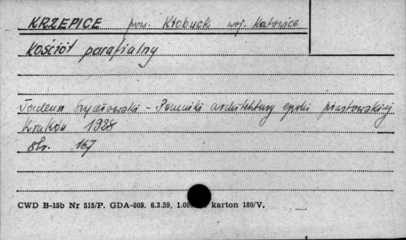 KRZEPICE pow. Kłobuck woj. Katowice
Kościół parafialny
Tadeusz Szydłowski - Pomniki architektury epoki piastowskiej
Kraków 1928
str. 167
CWD B-15b Nr 515/P. GDA-809. 6.3.59, 1.00 karton 180/V.